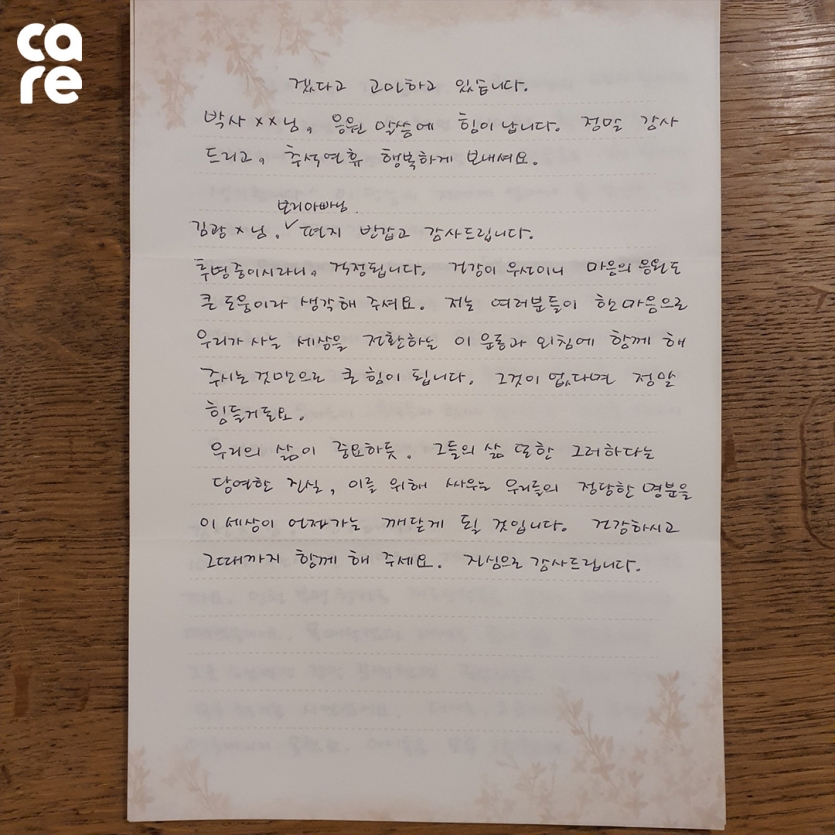 ca
re
겠다고 고민하고 있습니다.
박사××님, 응원 말씀에 힘이 납니다. 정말 감사
드리고, 추석연휴 행복하게 보내셔요.
보리아빠님.
김광×님, ✓ 편지 반갑고 감사드립니다.
투병중이시라니, 걱정됩니다. 건강이 우선이니 마음의 응원도
큰 도움이라 생각해 주셔요. 저는 여러분들이 한마음으로
우리가 사는 세상을 전환하는 이 운동과 외침에 함께 해
주시는 것만으로 큰 힘이 됩니다. 그것이 없다면 정말
힘들거든요.
우리의 삶이 중요하듯, 그들의 삶 또한 그러하다는
당연한 진실, 이를 위해 싸우는 우리들의 정당한 명분을
이 세상이 언젠가는 깨닫게 될 것입니다. 건강하시고
그때까지 함께 해 주세요. 진심으로 감사드립니다.